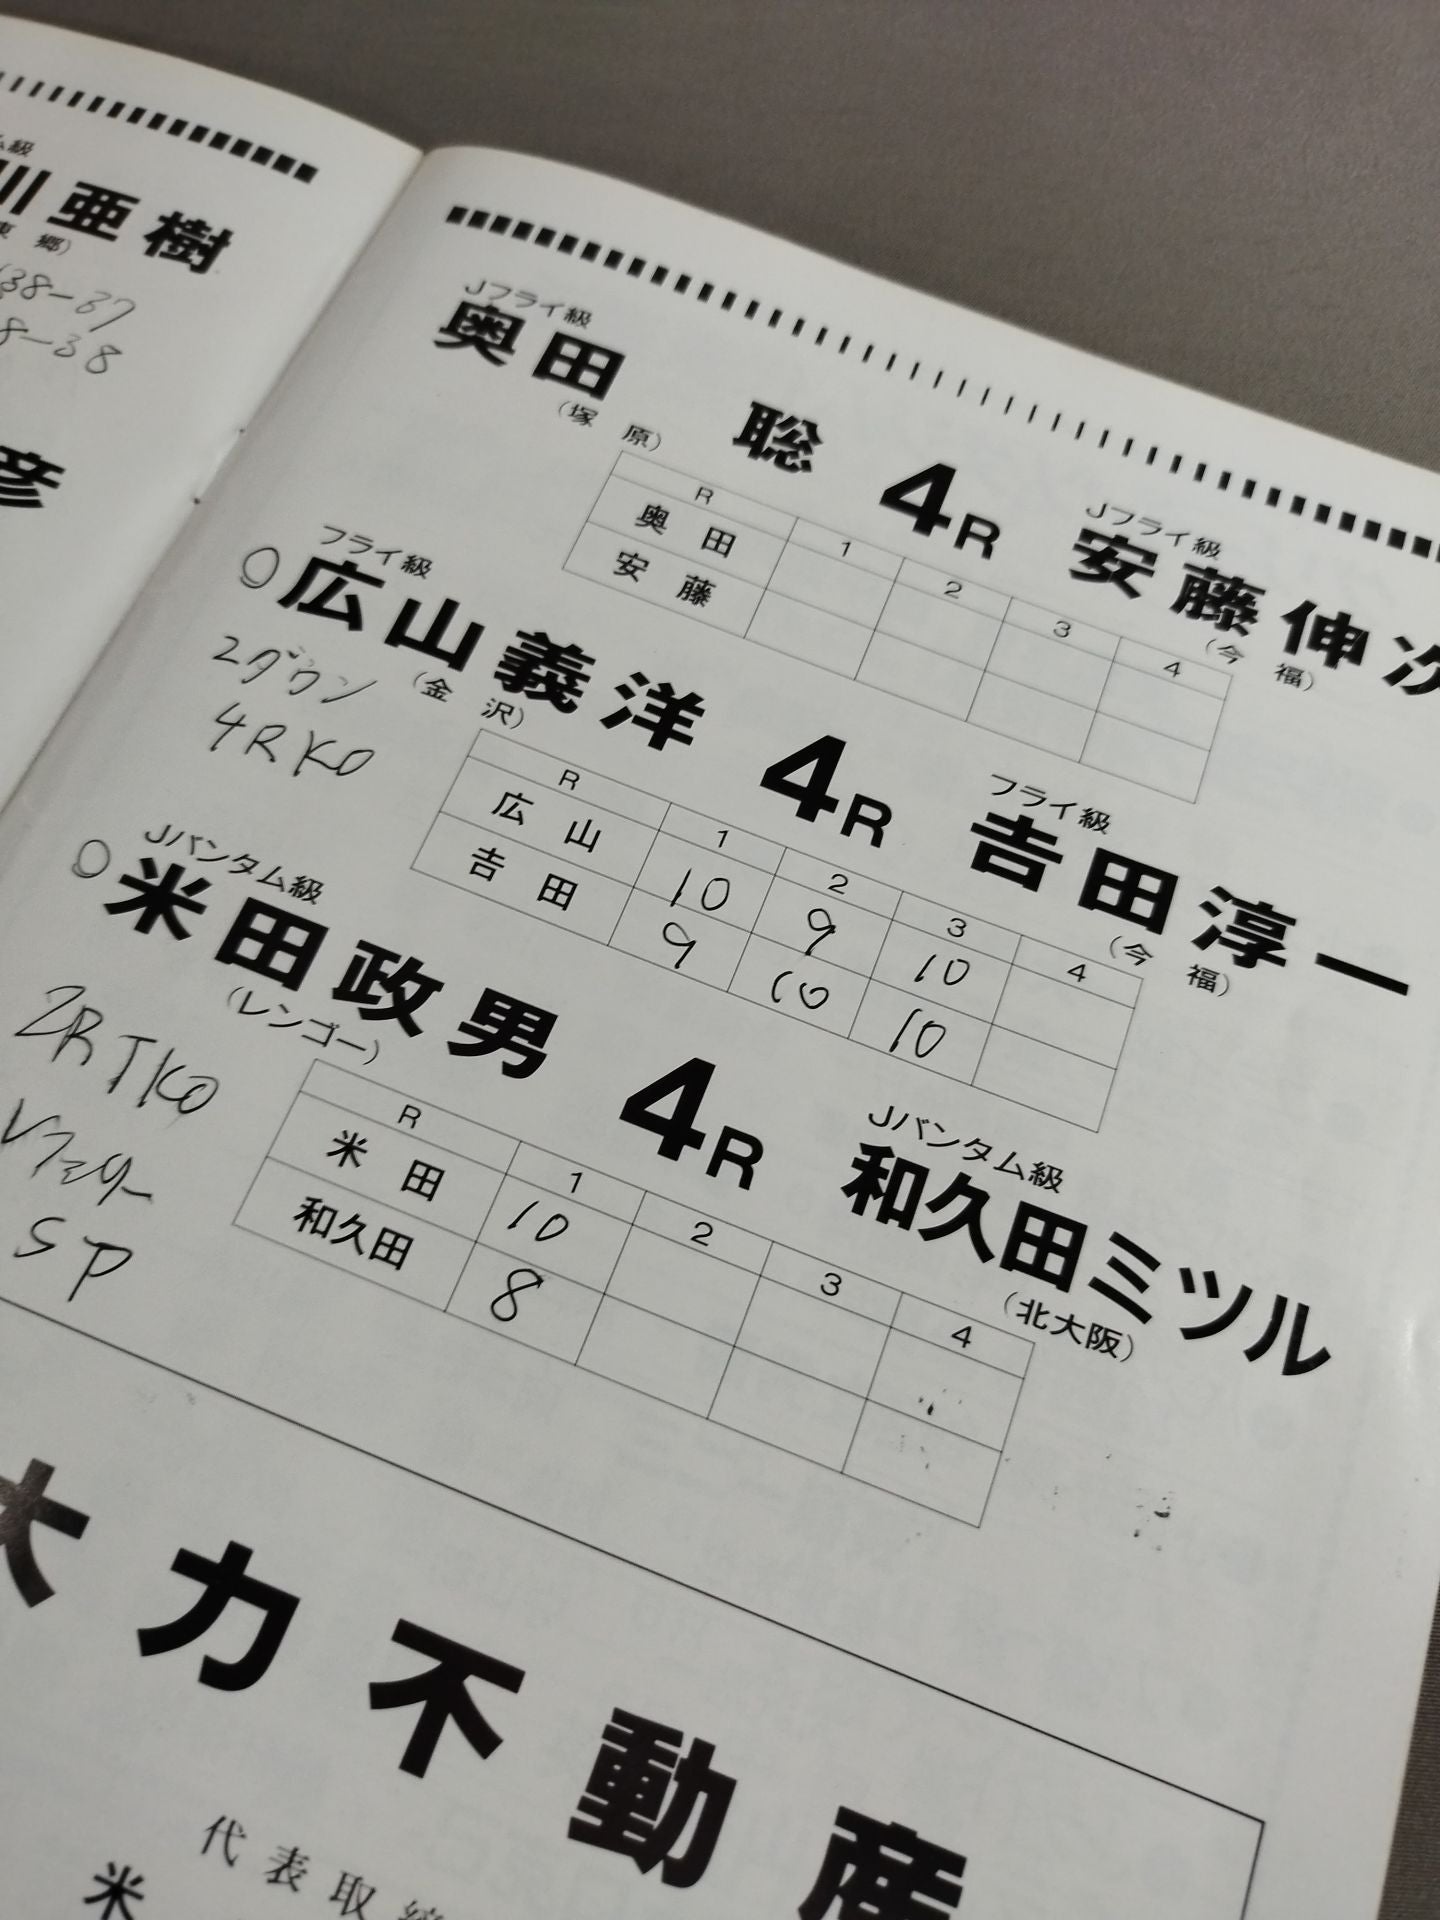 ム級
川亜樹
東郷）
38-37
8-38
彦
Jフライ級
奥田 聡
（塚原）
4R
Jフライ級
安藤伸次
（今福）
R 1 2 3 4
奥田
安藤
フライ級
広山義洋
（金沢）
2ダウン
4RKO
4R
フライ級
吉田淳一
（今福）
R 1 2 3 4
広山 10 9 10
吉田 9 10 10
Jバンタム級
米田政男
（レンゴー）
2RTKO
レフェリー
SP
4R
Jバンタム級
和久田ミツル
（北大阪）
R 1 2 3 4
米田 10
和久田 8
大力不動産
代表取締
米